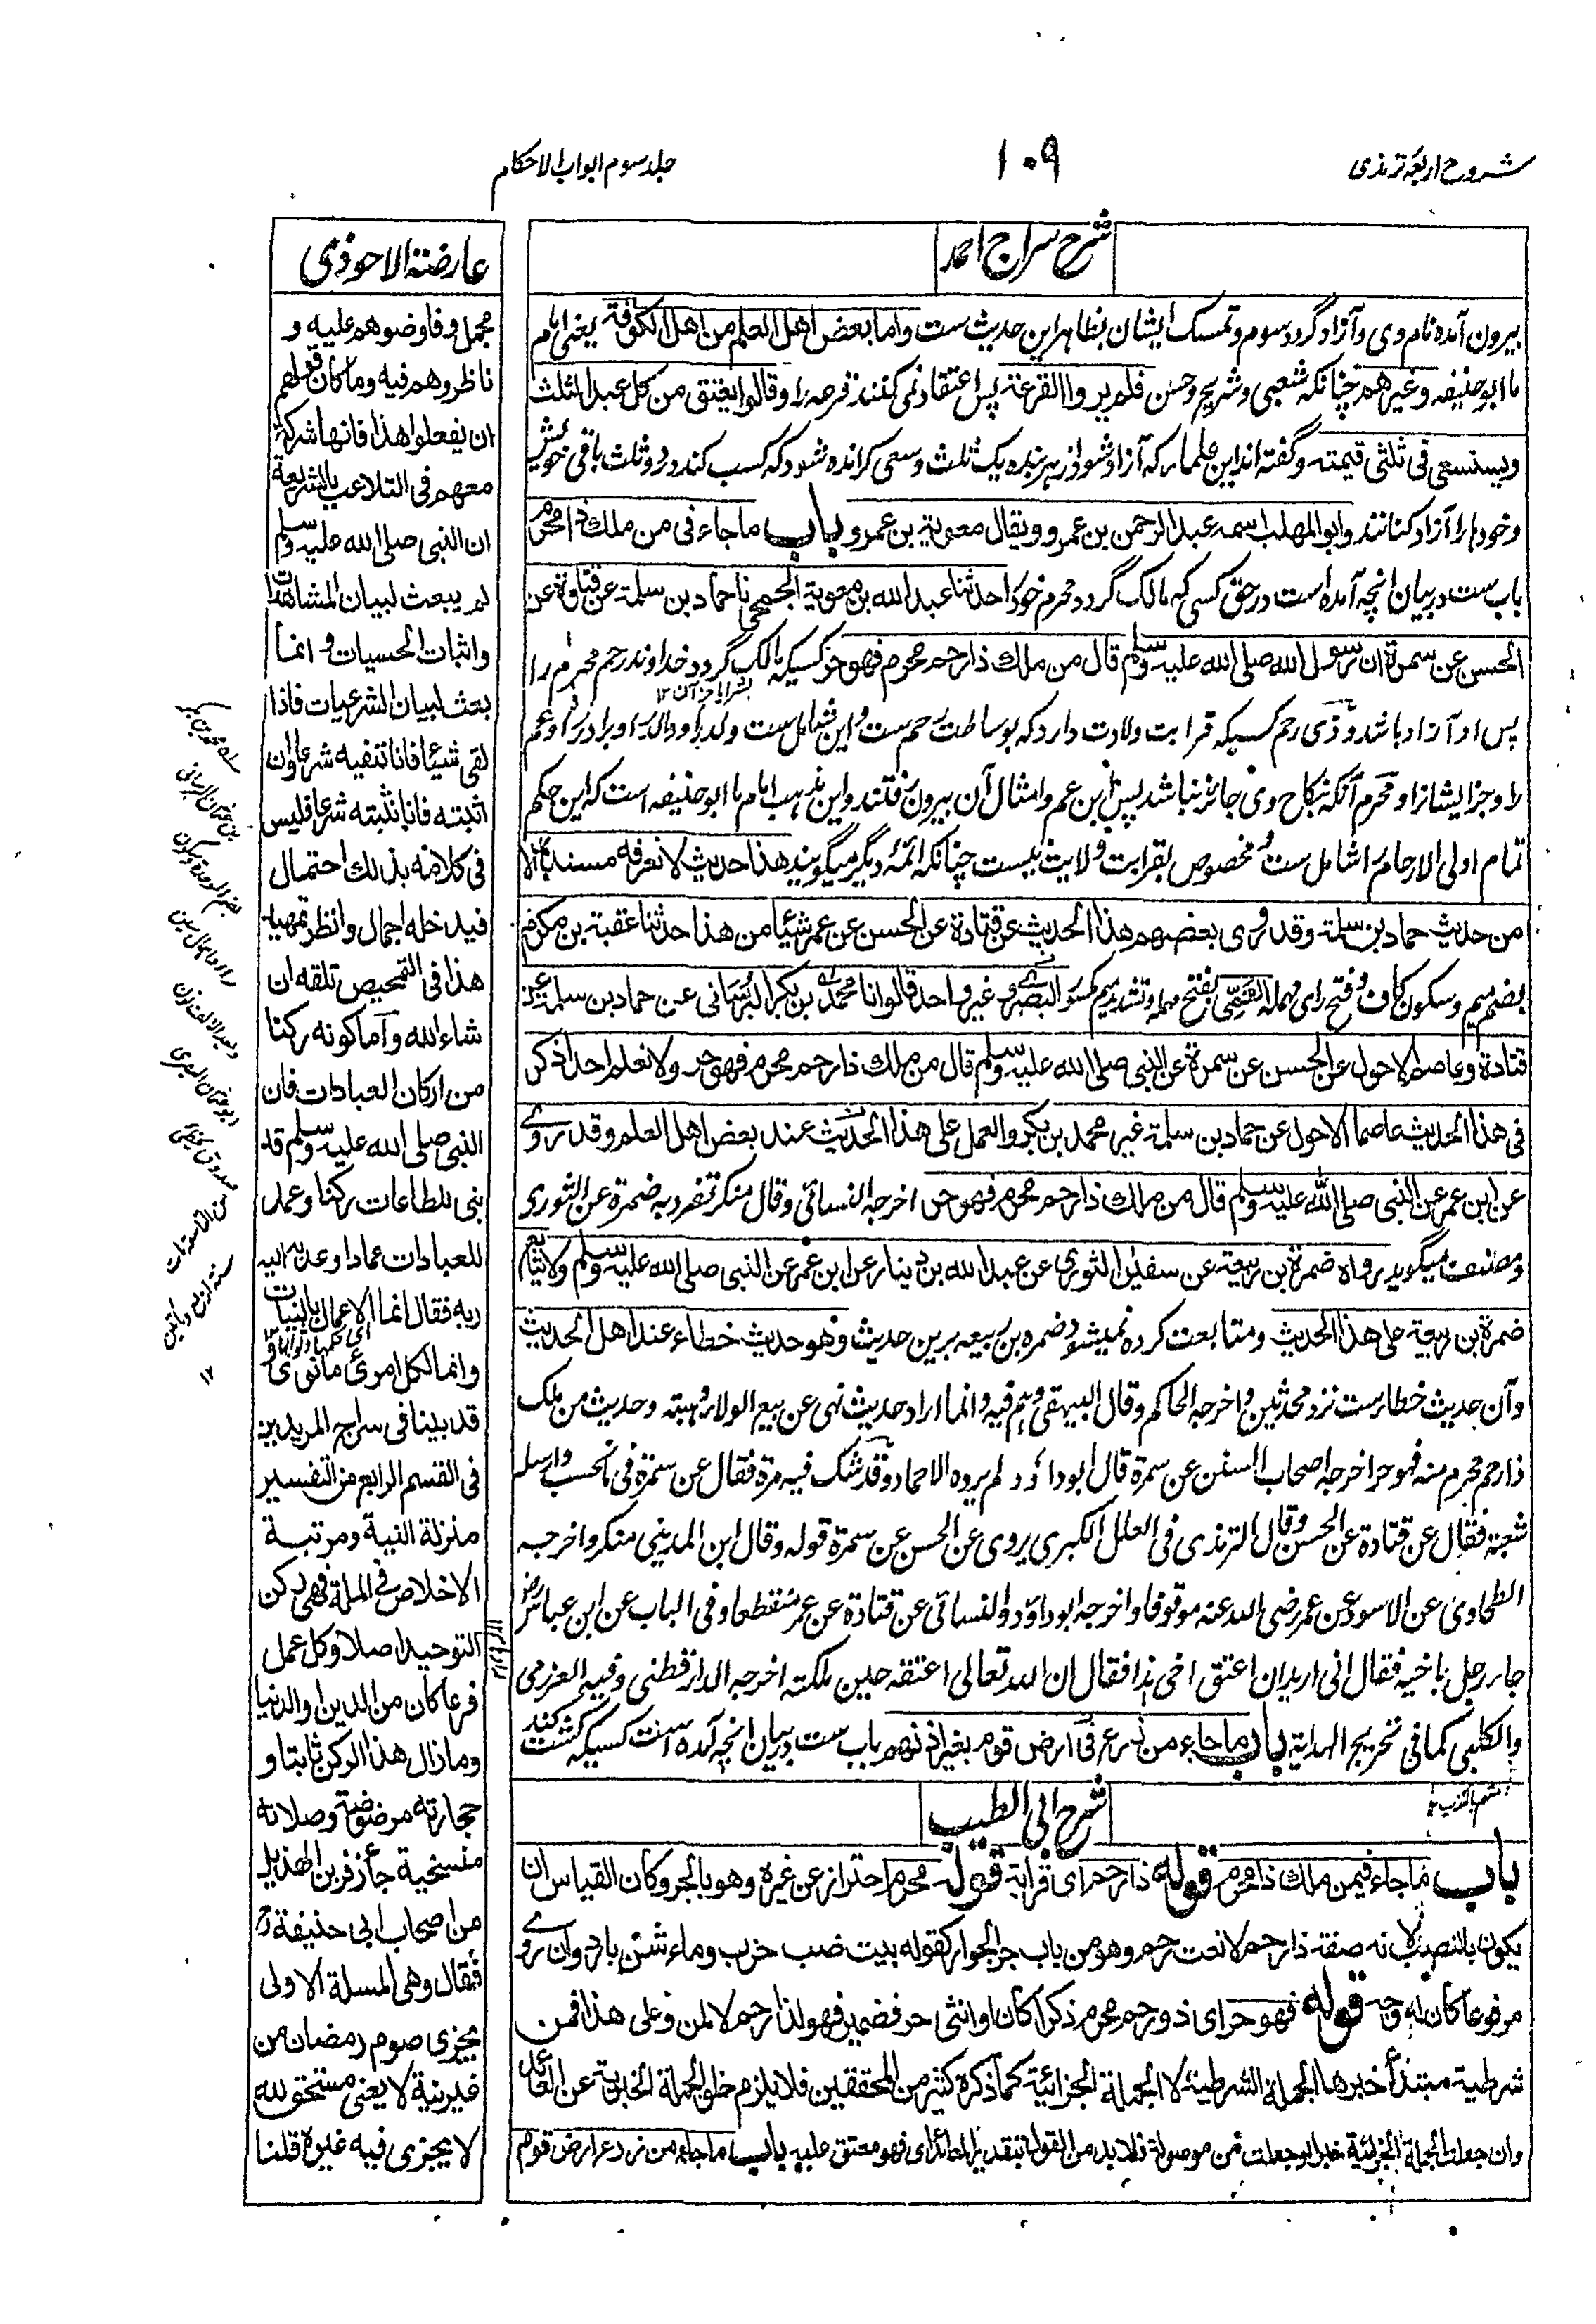 شروح اربعۂ ترمذی
۱۰۹
جلد سوم ابواب الاحکام
شرح سراج احمد
بیرون آمده نام وی وآزاد گردد سوم وتمسک ایشان بظاهر این حدیث ست واما بعض اهل العلم من اهل الکوفة یعنی امام
ما ابو حنیفه وغیرهم چنانکه شعبی وشریح وحسن فلم یروا القرعة پس اعتقاد نمی کنند قرعه را وقالوا یعتق من کل عبد الثلث
ویستسعی فی ثلثی قیمته وگفته اند این علماء که آزاد شود از هر بنده یک ثلث وسعی کرانده شود که کسب کند در دو ثلث باقی خویش
وخود را آزاد کنانند وابو المهلب اسمه عبد الرحمن بن عمرو ویقال معویة بن عمرو باب ماجاء فی من ملک ذا محرم
باب ست در بیان انچه آمده است در حق کسی که مالک گردد محرم خود را حدثنا عبد الله بن معویة الجمحی نا حماد بن سلمة عن قتادة عن
الحسن عن سمرة ان رسول الله صلی الله علیه وسلم قال من ملک ذا رحم محرم فهو حر کسیکه مالک گردد خداوند رحم محرم را
پس او آزاد باشد وذی رحم کسیکه قرابت ولادت دارد که بوساطت رحم ست واین شامل ست ولد را ووالد را وبرادر را وعم
را وجز ایشانرا ومحرم آنکه نکاح وی جائز نباشد پس ابن عم وامثال آن بیرون رفتند واین مذهب امام ما ابو حنیفه است که این حکم
تمام اولی الارحام را شامل ست ومخصوص بقرابت ولایت نیست چنانکه ائمه دیگر میگویند هذا حدیث لا نعرفه مسندا الا
من حدیث حماد بن سلمة وقد روی بعضهم هذا الحدیث عن قتادة عن الحسن عن عمر شیئا من هذا حدثنا عقبة بن مکرم
بضم میم وسکون کاف وفتح رای مهمله العمی بفتح مهمله وتشدید میم مکسور البصری وغیر واحد قالوا نا محمد بن بکر البرسانی عن حماد بن سلمة عن
قتادة وعاصم الاحول عن الحسن عن سمرة عن النبی صلی الله علیه وسلم قال من ملک ذا رحم محرم فهو حر ولا نعلم احدا ذکر
فی هذا الحدیث عاصما الاحول عن حماد بن سلمة غیر محمد بن بکر والعمل علی هذا الحدیث عند بعض اهل العلم وقد روی
عن ابن عمر عن النبی صلی الله علیه وسلم قال من ملک ذا رحم محرم فهو حر اخرجه النسائی وقال منکر تفرد به ضمرة عن الثوری
ومصنف میگوید رواه ضمرة بن ربیعة عن سفین الثوری عن عبد الله بن دینار عن ابن عمر عن النبی صلی الله علیه وسلم ولا یتابع
ضمرة بن ربیعة علی هذا الحدیث ومتابعت کرده نمیشود ضمره بن ربیعه برین حدیث وهو حدیث خطاء عند اهل الحدیث
وآن حدیث خطاء ست نزد محدثین واخرجه الحاکم وقال البیهقی وهم فیه وانما اراد حدیث نهی عن بیع الولاء وهبته وحدیث من ملک
ذا رحم محرم منه فهو حر اخرجه اصحاب السنن عن سمرة قال ابو داؤد ولم یروه الا حماد وقد شک فیه مرة فقال عن سمرة فی وارسله
شعبة فقال عن قتادة عن الحسن وقال الترمذی فی العلل الکبری یروی عن الحسن عن سمرة قوله وقال ابن المدینی منکر واخرجه
الطحاوی عن الاسود عن عمر رضی الله عنه موقوفا واخرجه ابو داؤد والنسائی عن قتادة عن عمر منقطعا وفی الباب عن ابن عباس
جاء رجل باخیه فقال انی ارید ان اعتق اخی هذا فقال ان الله تعالی اعتقه حین ملکته اخرجه الدار قطنی وفیه العزرمی
والکلبی کما فی تخریج الهدایة باب ما جاء من زرع فی ارض قوم بغیر اذنهم باب ست در بیان انچه آمده است کسیکه کشت کند
شرح ابی الطیب
باب ما جاء فیمن ملک ذا محرم قوله ذا رحم ای قرابة قوله محرم احتراز عن غیره وهو بالجر وکان القیاس ان
یکون بالنصب لانه صفة ذا رحم لا نعت رحم وهو من باب جر الجوار کقوله بیت ضب خرب وماء شن بارد وان روی
مرفوعا کان له وجه قوله فهو حر ای ذو رحم محرم ذکرا کان او انثی حر فضمیر فهو لذا رحم لا لمن وعلی هذا فمن
شرطیة مبتدأ خبرها الجملة الشرطیة لا الجملة الجزائیة کما ذکره کثیر من المحققین فلا یلزم خلو الجملة الخبریة عن العائد
وان جعلت الجملة الجزائیة خبرا او جعلت من موصولة فلا بد من القول بتقدیر العائد ای فهو معتق علیه باب ما جاء من زرع ارض قوم
عارضة الاحوذی
مجمل وفاوضوهم علیه و
ناظروهم فیه وما کان قولهم
ان یفعلوا هذا فانها شرکة
معهم فی التلاعب بالشریعة
ان النبی صلی الله علیه وسلم
لم یبعث لبیان المشاهدات
واثبات الحسیات وانما
بعث لبیان الشرعیات فاذا
نفی شیئا فانا ننفیه شرعا وان
اثبته فانا نثبته شرعا فلیس
فی کلامه بذلک احتمال
فیدخله اجمال وانظر تمهید
هذا فی التمحیص تلقه ان
شاء الله واما کونه رکنا
من ارکان العبادات فان
النبی صلی الله علیه وسلم قد
بنی للطاعات رکنا وعمد
للعبادات عمادا وعهد الیه
ربه فقال انما الاعمال بالنیات
وانما لکل امرئ ما نوی
قد بینا فی سراج المریدین
فی القسم الرابع من التفسیر
منزلة النیة ومرتبة
الاخلاص فی الملة فهی رکن
التوحید اصلا وکل عمل
فرعا کان من الدین او الدنیا
وما زال هذا الرکن ثابتا و
حجارته مرضوضة وصلاته
منسخیة جاء زفر بن الهذیل
من اصحاب ابی حنیفة
فقال وهی المسئلة الاولی
یجزی صوم رمضان من
غیر نیة لا یعنی مستحق لله
لا یجزی فیه غیره قلنا